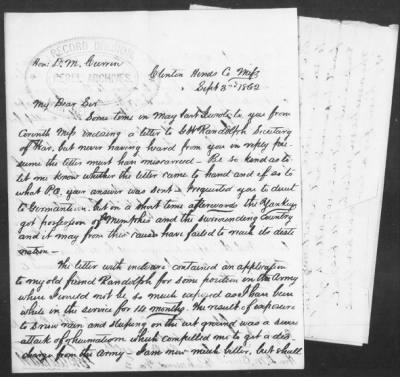 RECORD DIVISION
REBEL ARCHIVES
Hon: D. M. Currin
Clinton Hinds Co Miss
Sept 3rd 1862
My Dear Sir
Some time in May last I wrote to you from
Corinth Miss enclosing a letter to G W Randolph Secretary
of War, but never having heard from you in reply pre-
sume the letter must have miscarried - Be so kind as to
let me know whether the letter came to hand and if so to
what P.O. your answer was sent - I requested you to direct
to Germantown, but in a short time afterwards the Yankeys
got possession of Memphis and the surrounding Country
and it may from this cause have failed to reach its desti
nation -
The letter with enclosure contained an application
to my old friend Randolph for some position in the Army
where I would not be so much exposed as I have been
while in the service for 14 months. The result of exposure
to snow rain and sleeping on the wet ground was a severe
attack of rheumatism which compelled me to get a dis-
charge from the Army - I am now much better, but shall